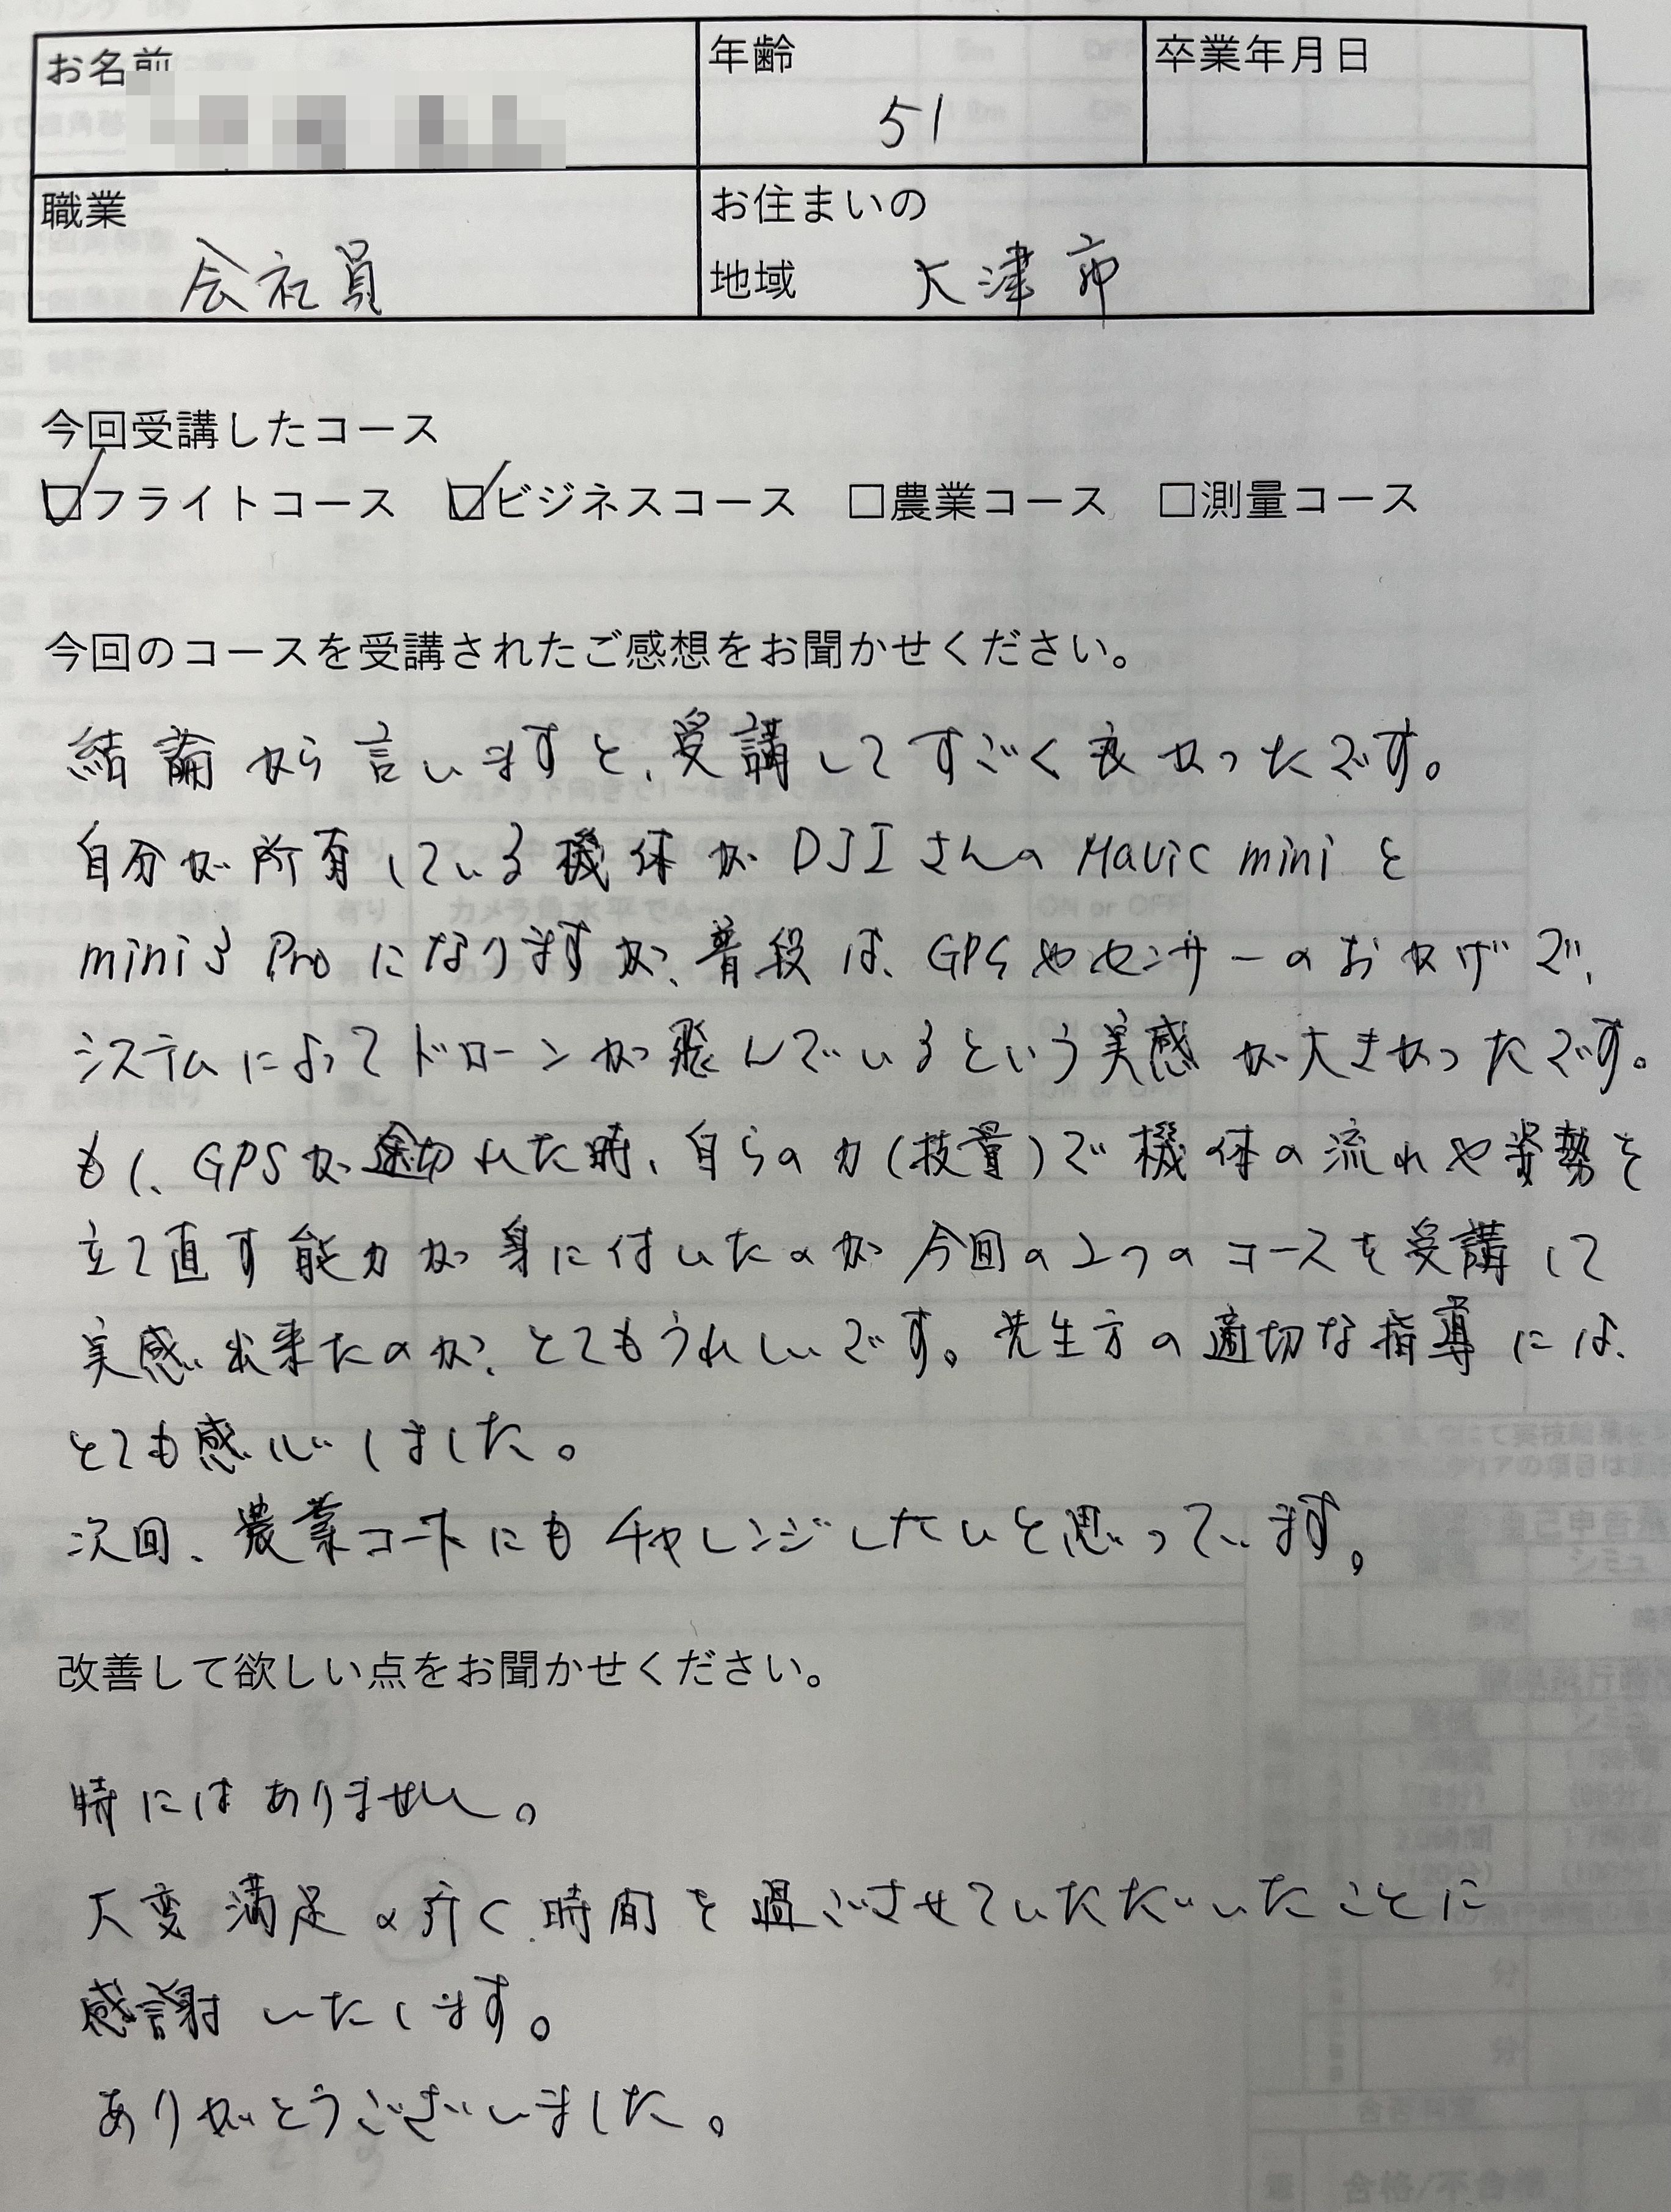 お名前
年齢
卒業年月日
51
職業
お住まいの
会社員
地域 大津市
今回受講したコース
☑フライトコース ☑ビジネスコース □農業コース □測量コース
今回のコースを受講されたご感想をお聞かせください。
結論から言いますと、受講してすごく良かったです。
自分が所有している機体がDJIさんのMavic miniと
mini3 Proになりますが、普段は、GPSやセンサーのおかげで、
システムによってドローンが飛んでいるという実感が大きかったです。
もし、GPSが途切れた時、自らの力(技量)で機体の流れや姿勢を
立て直す能力が身に付いたのが今回の2つのコースを受講して
実感出来たのが、とてもうれしいです。先生方の適切な指導には、
とても感心しました。
次回、農業コートにもチャレンジしたいと思っています。
改善して欲しい点をお聞かせください。
特にはありません。
大変満足の行く時間を過ごさせていただいたことに
感謝いたします。
ありがとうございました。